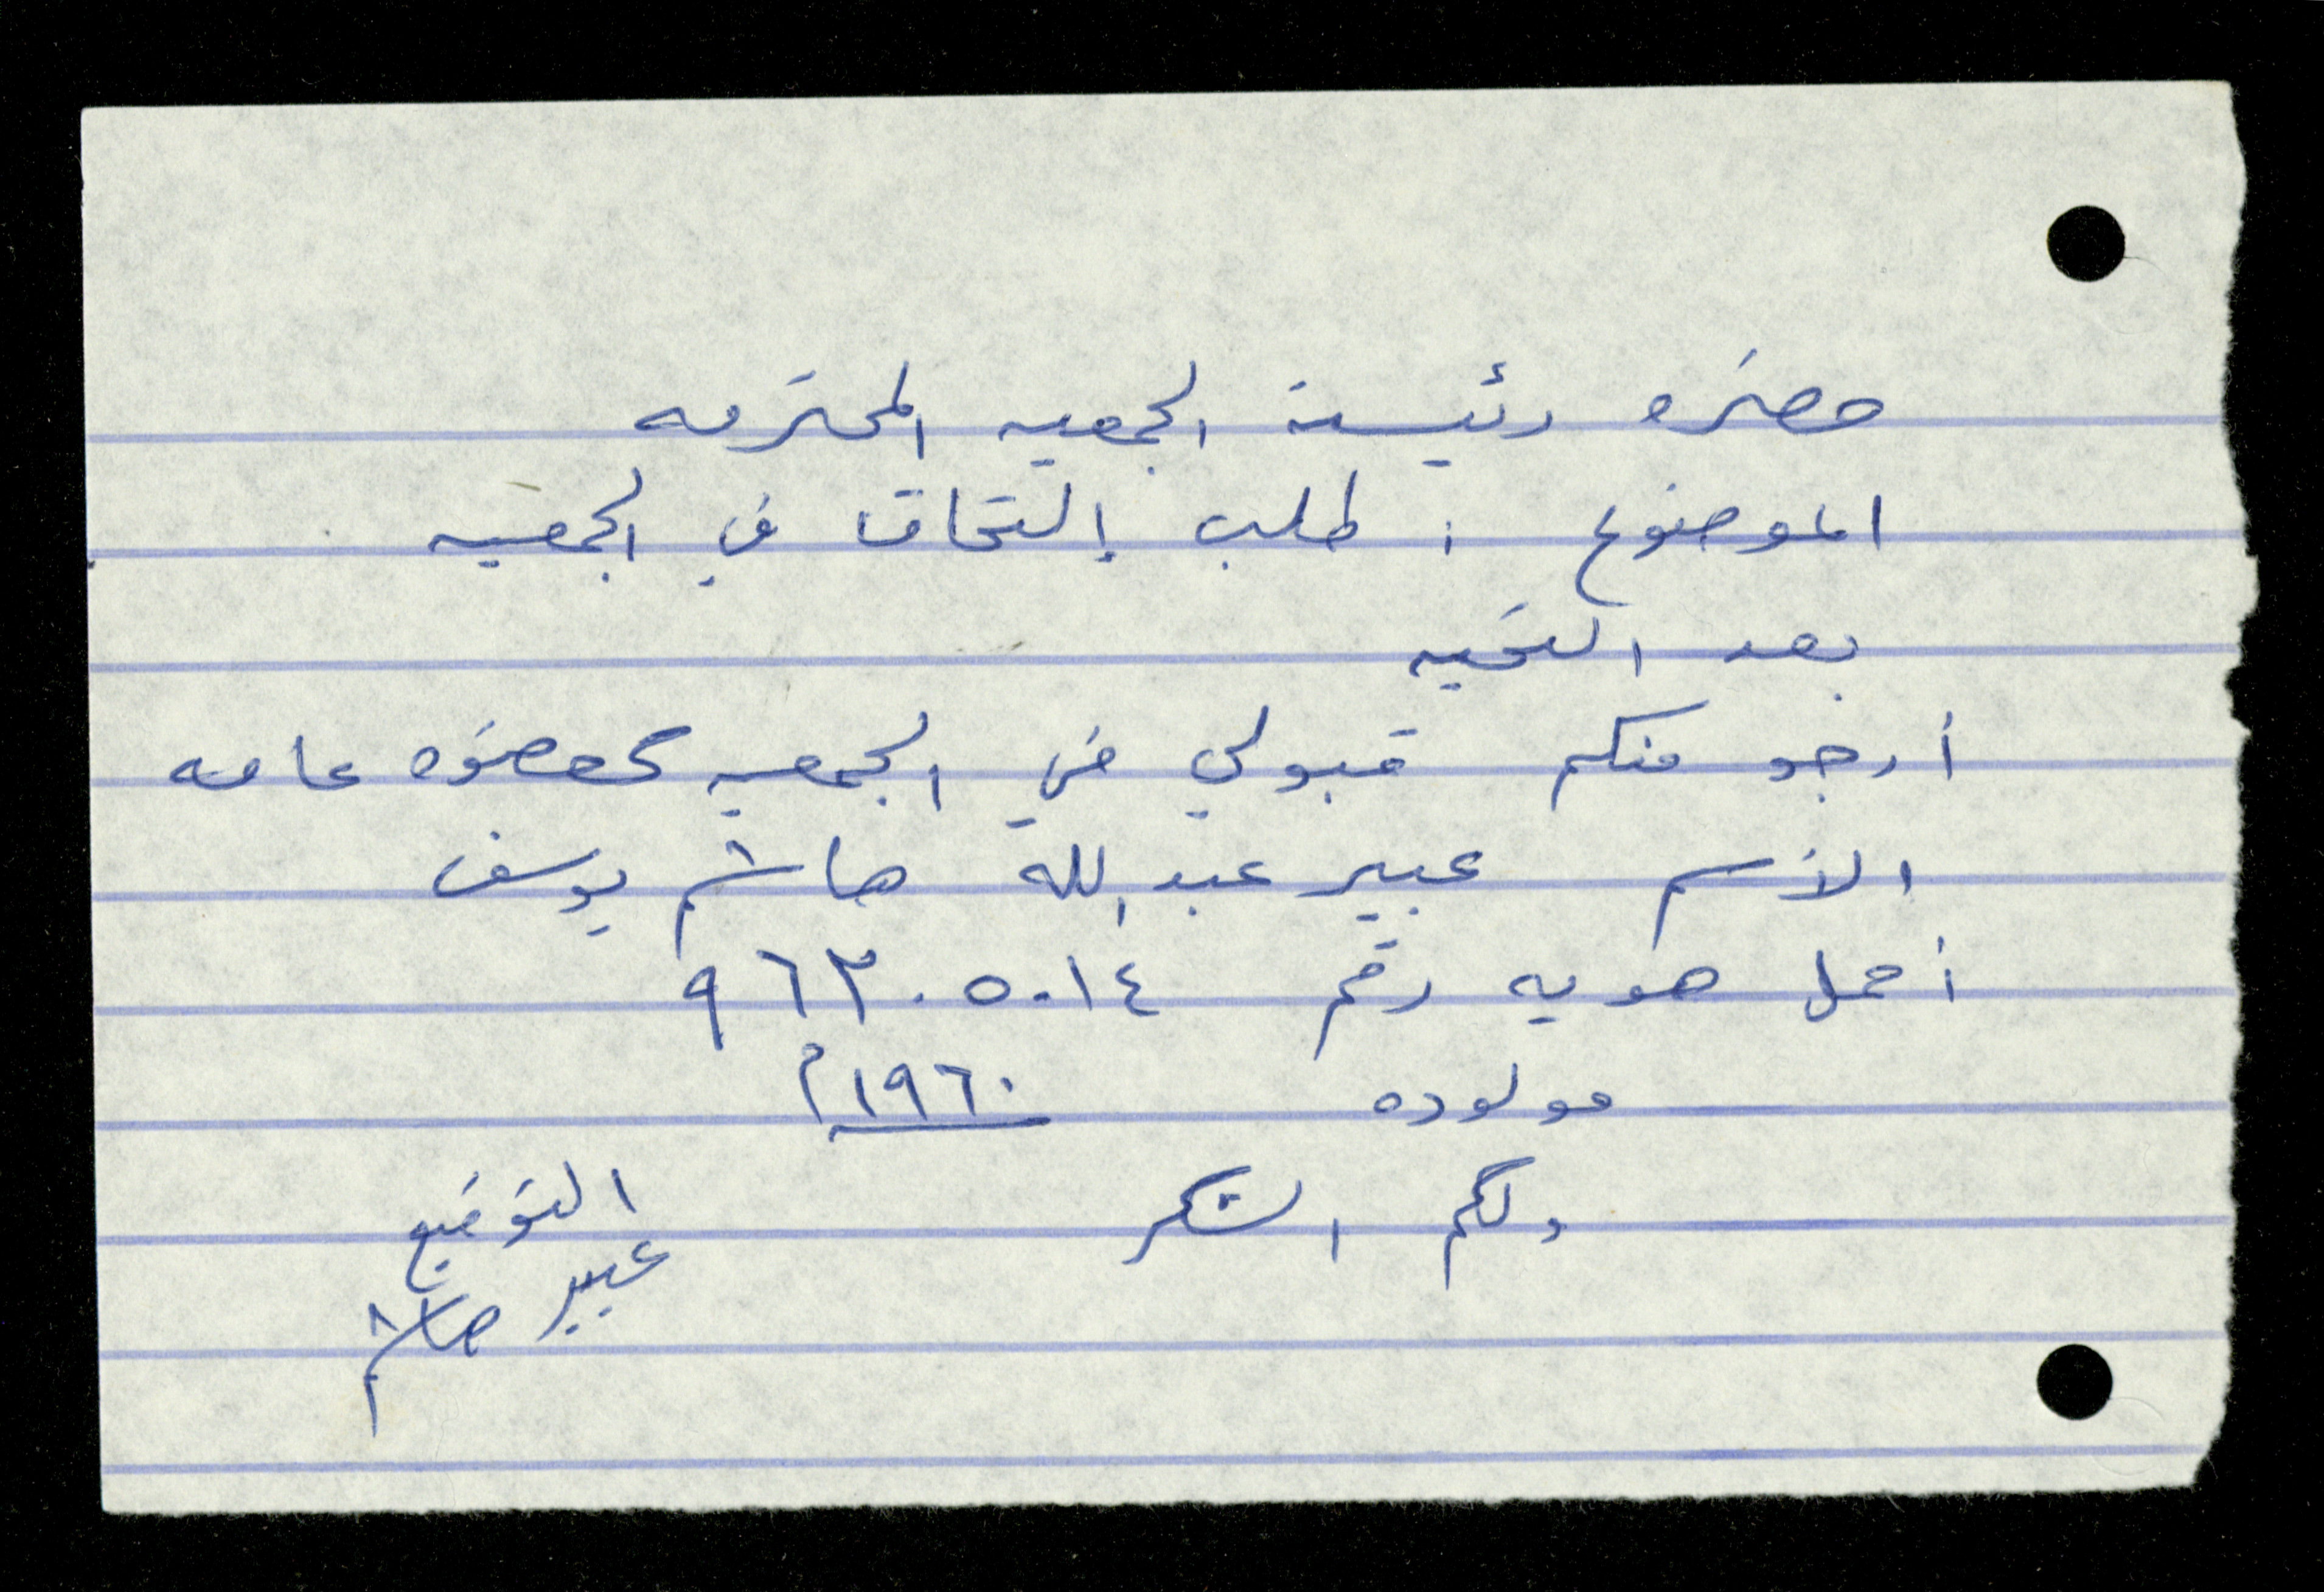 حضره رئيسة الجمعيه المحترمه
الموضوع : طلب إلتحاق في الجمعيه
بعد التحيه
أرجو منكم قبولي في الجمعيه كعضوه عامه
الأسم عبير عبد الله هاشم يوسف
أحمل هويه رقم ٩٦٢٠٥٠١٤
مولوده ١٩٦٠م
ولكم الشكر
التوقيع
عبير هاشم